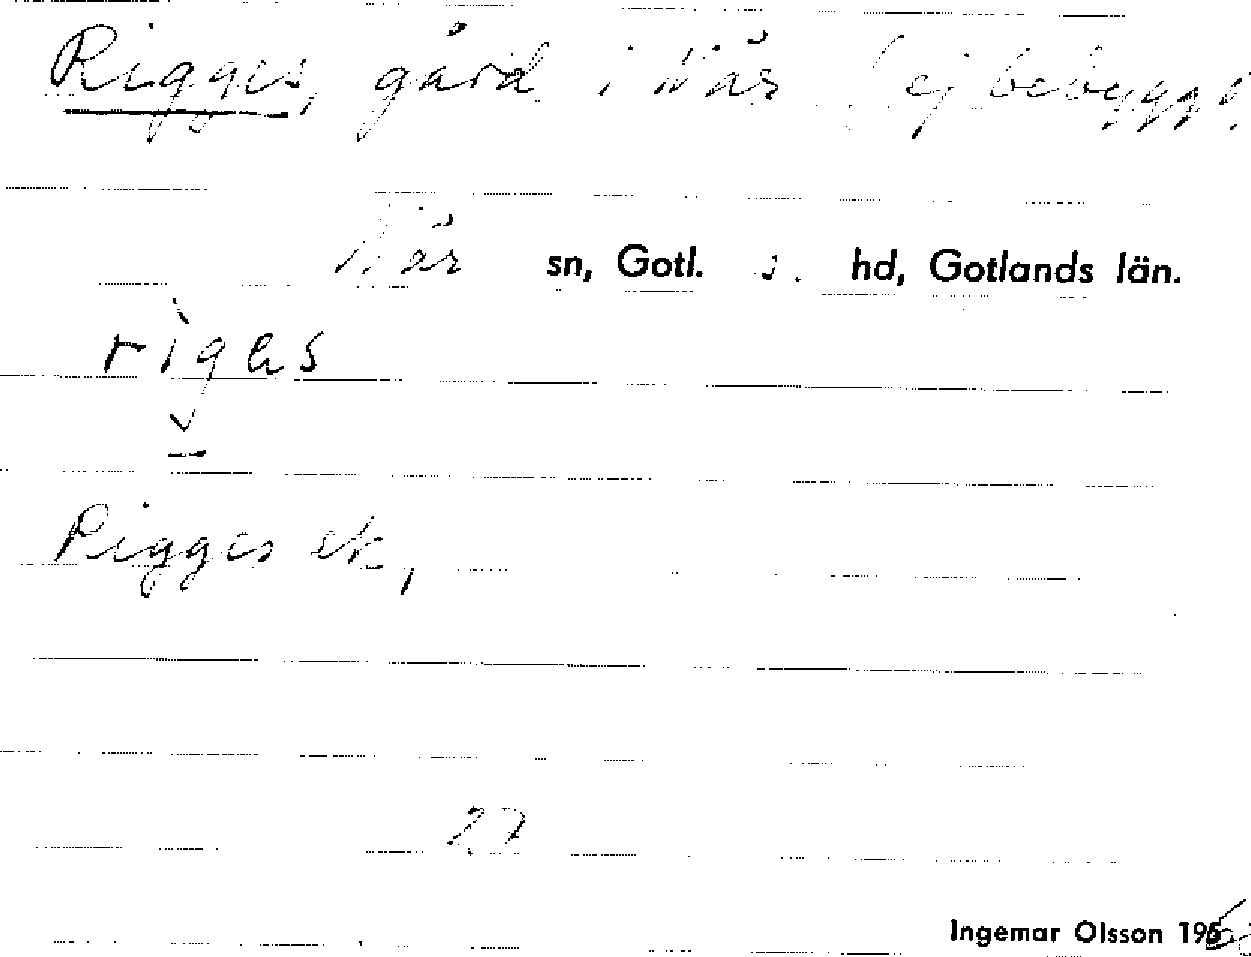 Rigges, gård i När (ej bebyggd
När sn, Gotl. s. hd, Gotlands län.
rigas
Rigges ek,
27
Ingemar Olsson 196